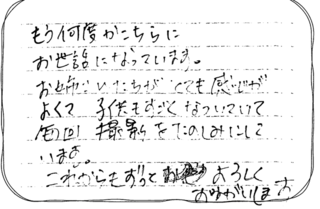 もう何度かこちらに
お世話になっています。
お姉さんたちが とても感じが
よくて 子供もすごくなついていて
毎回 撮影をたのしみにして
います。
これからもずっと よろしく
おねがいします